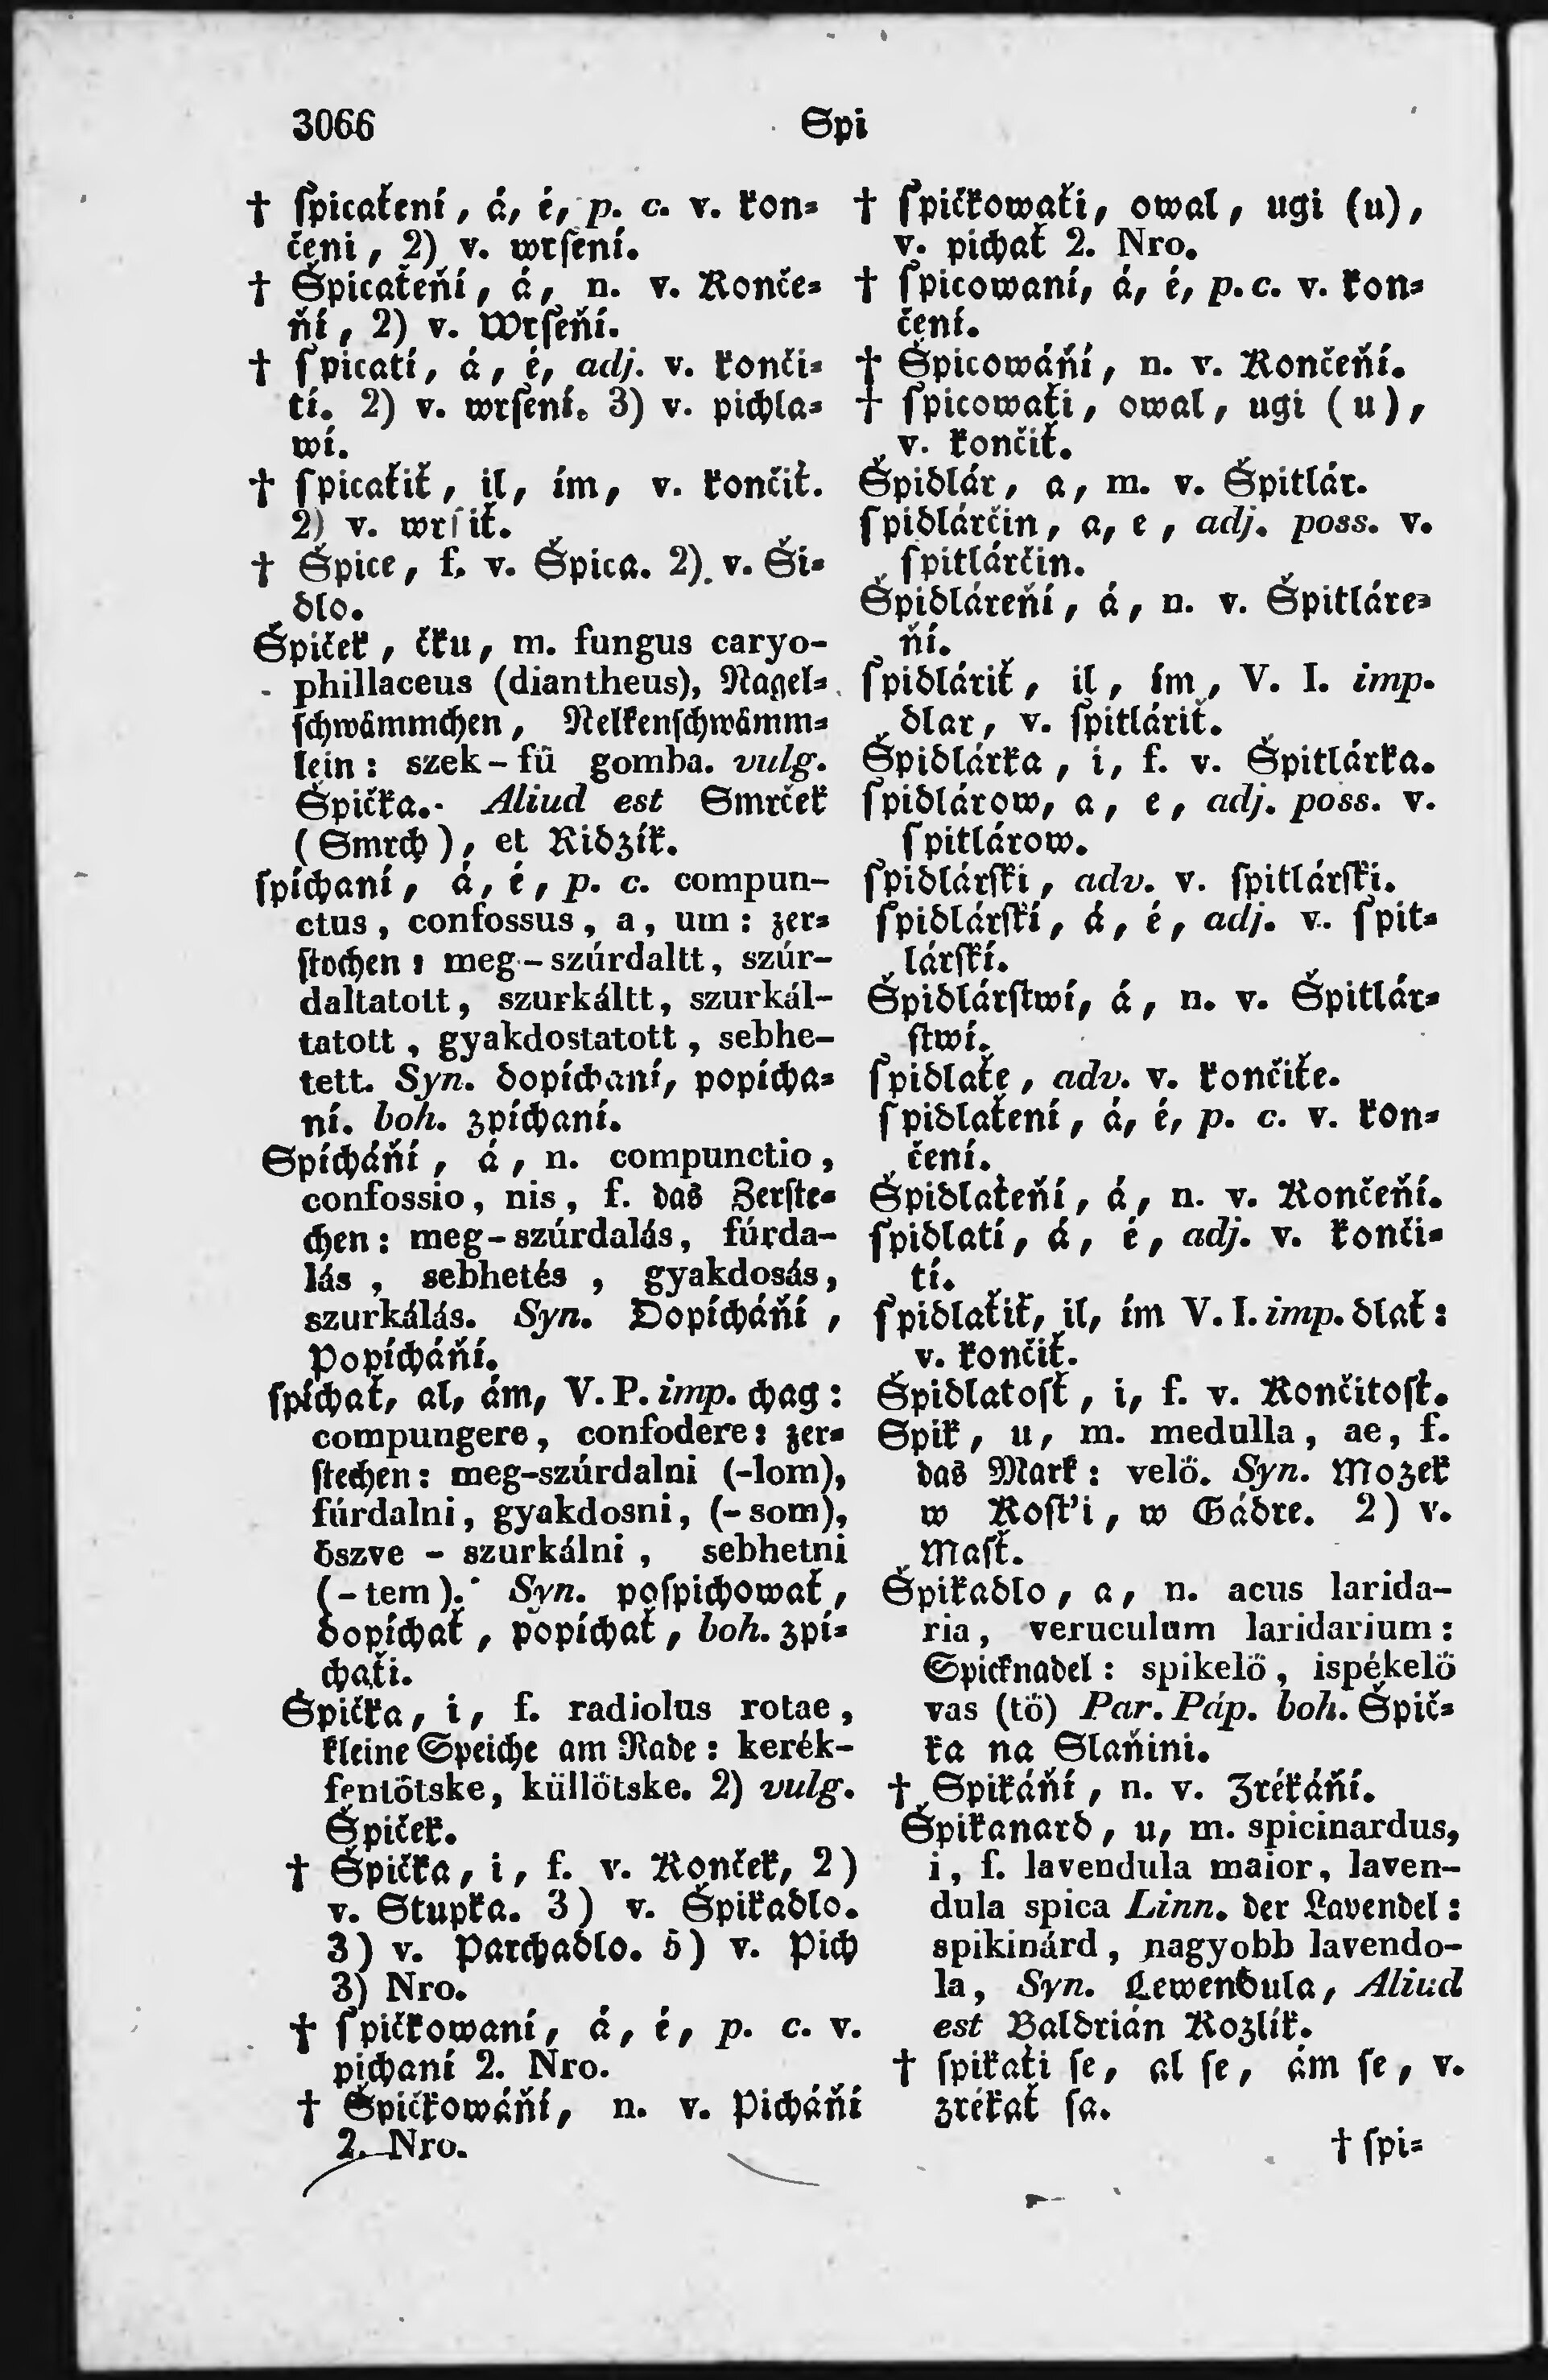 3066
Spi
† ſpicaťení, á, é, p. c. v. kon⸗
čeni, 2) v. wrſení.
† Špicaťeňí, á, n. v. Konče⸗
ňí, 2) v. Wrſeňí.
† ſpicatí, á, é, adj. v. konči⸗
tí. 2) v. wrſení. 3) v. pichla⸗
wí.
† ſpicaťiť, il, ím, v. končiť.
2) v. wrſiť.
† Špice, f. v. Špica. 2) v. Ši⸗
dlo.
Špiček, čku, m. fungus caryo-
phillaceus (diantheus), Nagel⸗
ſchwämmchen, Nelkenſchwämm⸗
lein: szek-fü gomba. vulg.
Špička. Aliud est Smrček
(Smrch), et Ridzík.
ſpíchaní, á, é, p. c. compun-
ctus, confossus, a, um: zer⸗
ſtochen: meg-szúrdaltt, szúr-
daltatott, szurkáltt, szurkál-
tatott, gyakdostatott, sebhe-
tett. Syn. dopíchaní, popícha⸗
ní. boh. zpíchaní.
Spícháňí, á, n. compunctio,
confossio, nis, f. das Zerſte⸗
chen: meg-szúrdalás, fúrda-
lás, sebhetés, gyakdosás,
szurkálás. Syn. Dopícháňí,
Popícháňí.
ſpíchať, al, ám, V. P. imp. chag:
compungere, confodere: zer⸗
ſtechen: meg-szúrdalni (-lom),
fúrdalni, gyakdosni, (-som),
öszve - szurkálni, sebhetni
(-tem). Syn. poſpichowať,
dopíchať, popíchať, boh. zpí⸗
chaťi.
Špička, i, f. radiolus rotae,
kleine Speiche am Rade: kerék-
fentötske, küllötske. 2) vulg.
Špiček.
† Špička, i, f. v. Konček, 2)
v. Stupka. 3) v. Špikadlo.
3) v. Parchadlo. 5) v. Pich
3) Nro.
† ſpičkowaní, á, é, p. c. v.
pichaní 2. Nro.
† Špičkowáňí, n. v. Picháňí
2. Nro.
† ſpičkowaťi, owal, ugi (u),
v. pichať 2. Nro.
† ſpicowaní, á, é, p. c. v. kon⸗
čení.
† Špicowáňí, n. v. Končeňí.
† ſpicowaťi, owal, ugi (u),
v. končiť.
Špidlár, a, m. v. Špitlár.
ſpidlárčin, a, e, adj. poss. v.
ſpitlárčin.
Špidláreňí, á, n. v. Špitláre⸗
ňí.
ſpidláriť, il, ím, V. I. imp.
dlar, v. ſpitláriť.
Špidlárka, i, f. v. Špitlárka.
ſpidlárow, a, e, adj. poss. v.
ſpitlárow.
ſpidlárſki, adv. v. ſpitlárſki.
ſpidlárſkí, á, é, adj. v. ſpit⸗
lárſkí.
Špidlárſtwí, á, n. v. Špitlár⸗
ſtwí.
ſpidlaťe, adv. v. končiťe.
ſpidlaťení, á, é, p. c. v. kon⸗
čení.
Špidlaťeňí, á, n. v. Končeňí.
ſpidlatí, á, é, adj. v. konči⸗
tí.
ſpidlaťiť, il, ím V. I. imp. dlať:
v. končiť.
Špidlatoſť, i, f. v. Končitoſť.
Spik, u, m. medulla, ae, f.
das Mark: velö. Syn. Mozek
w Koſt'i, w Gádre. 2) v.
Maſť.
Špikadlo, a, n. acus larida-
ria, veruculum laridarium:
Spicknadel: spikelö, ispékelö
vas (tö) Par. Páp. boh. Špič⸗
ka na Slaňini.
† Spikáňí, n. v. Zrékáňí.
Špikanard, u, m. spicinardus,
i, f. lavendula maior, laven-
dula spica Linn. der Lavendel:
spikinárd, nagyobb lavendo-
la, Syn. Lewendula, Aliud
est Baldrián Kozlík.
† ſpikaťi ſe, al ſe, ám ſe, v.
zrékať ſa.
† ſpi⸗